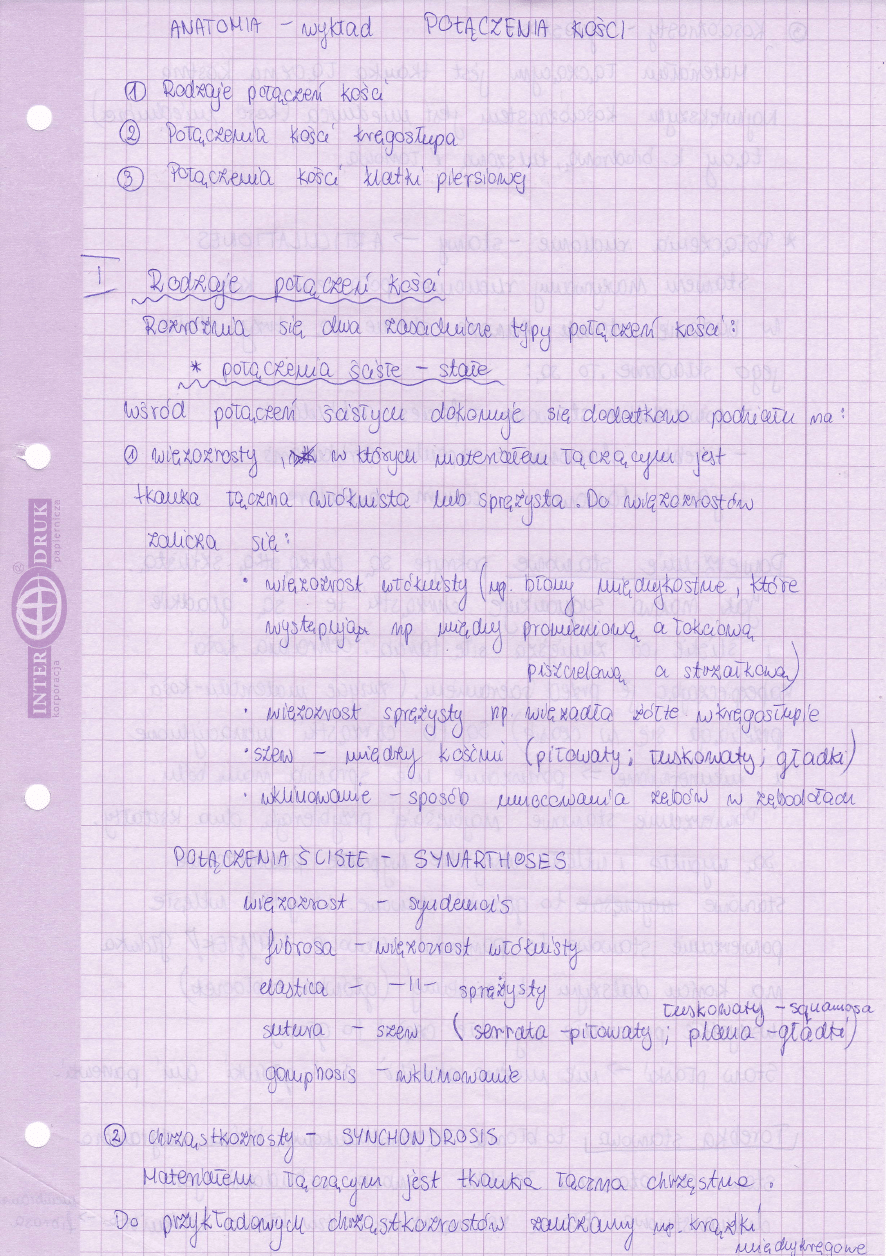 ANATOMIA - wykład POŁĄCZENIA KOŚCI
① Rodzaje połączeń kości
② Połączenia kości kręgosłupa
③ Połączenia kości klatki piersiowej
I Rodzaje połączeń kości
Rozróżnia się dwa zasadnicze typy połączeń kości:
* połączenia ścisłe - stałe
Wśród połączeń ścisłych dokonuje się dodatkowo podziału na:
① więzozrosty, w których materiałem łączącym jest
tkanka łączna włóknista lub sprężysta. Do więzozrostów
zalicza się:
• więzozrost włóknisty (np. błony międzykostne, które
występują np między promieniową a łokciową
piszczelową a strzałkową)
• więzozrost sprężysty np więzadła żółte w kręgosłupie
• szew - między kośćmi (piłowaty; łuskowaty; gładki)
• wklinowanie - sposób umocowania zębów w zębodołach
POŁĄCZENIA ŚCISŁE - SYNARTHOSES
więzozrost - syndemois
fibrosa - więzozrost włóknisty
elastica - -||- sprężysty
łuskowaty - squamosa
sutura - szew (serrata - piłowaty; plana - gładki)
gomphosis - wklinowanie
② chrząstkozrosty - SYNCHONDROSIS
Materiałem łączącym jest tkanka łączna chrzęstna.
Do przykładowych chrząstkozrostów zaliczamy np. krążki
międzykręgowe
INTER DRUK
korporacja papiernicza